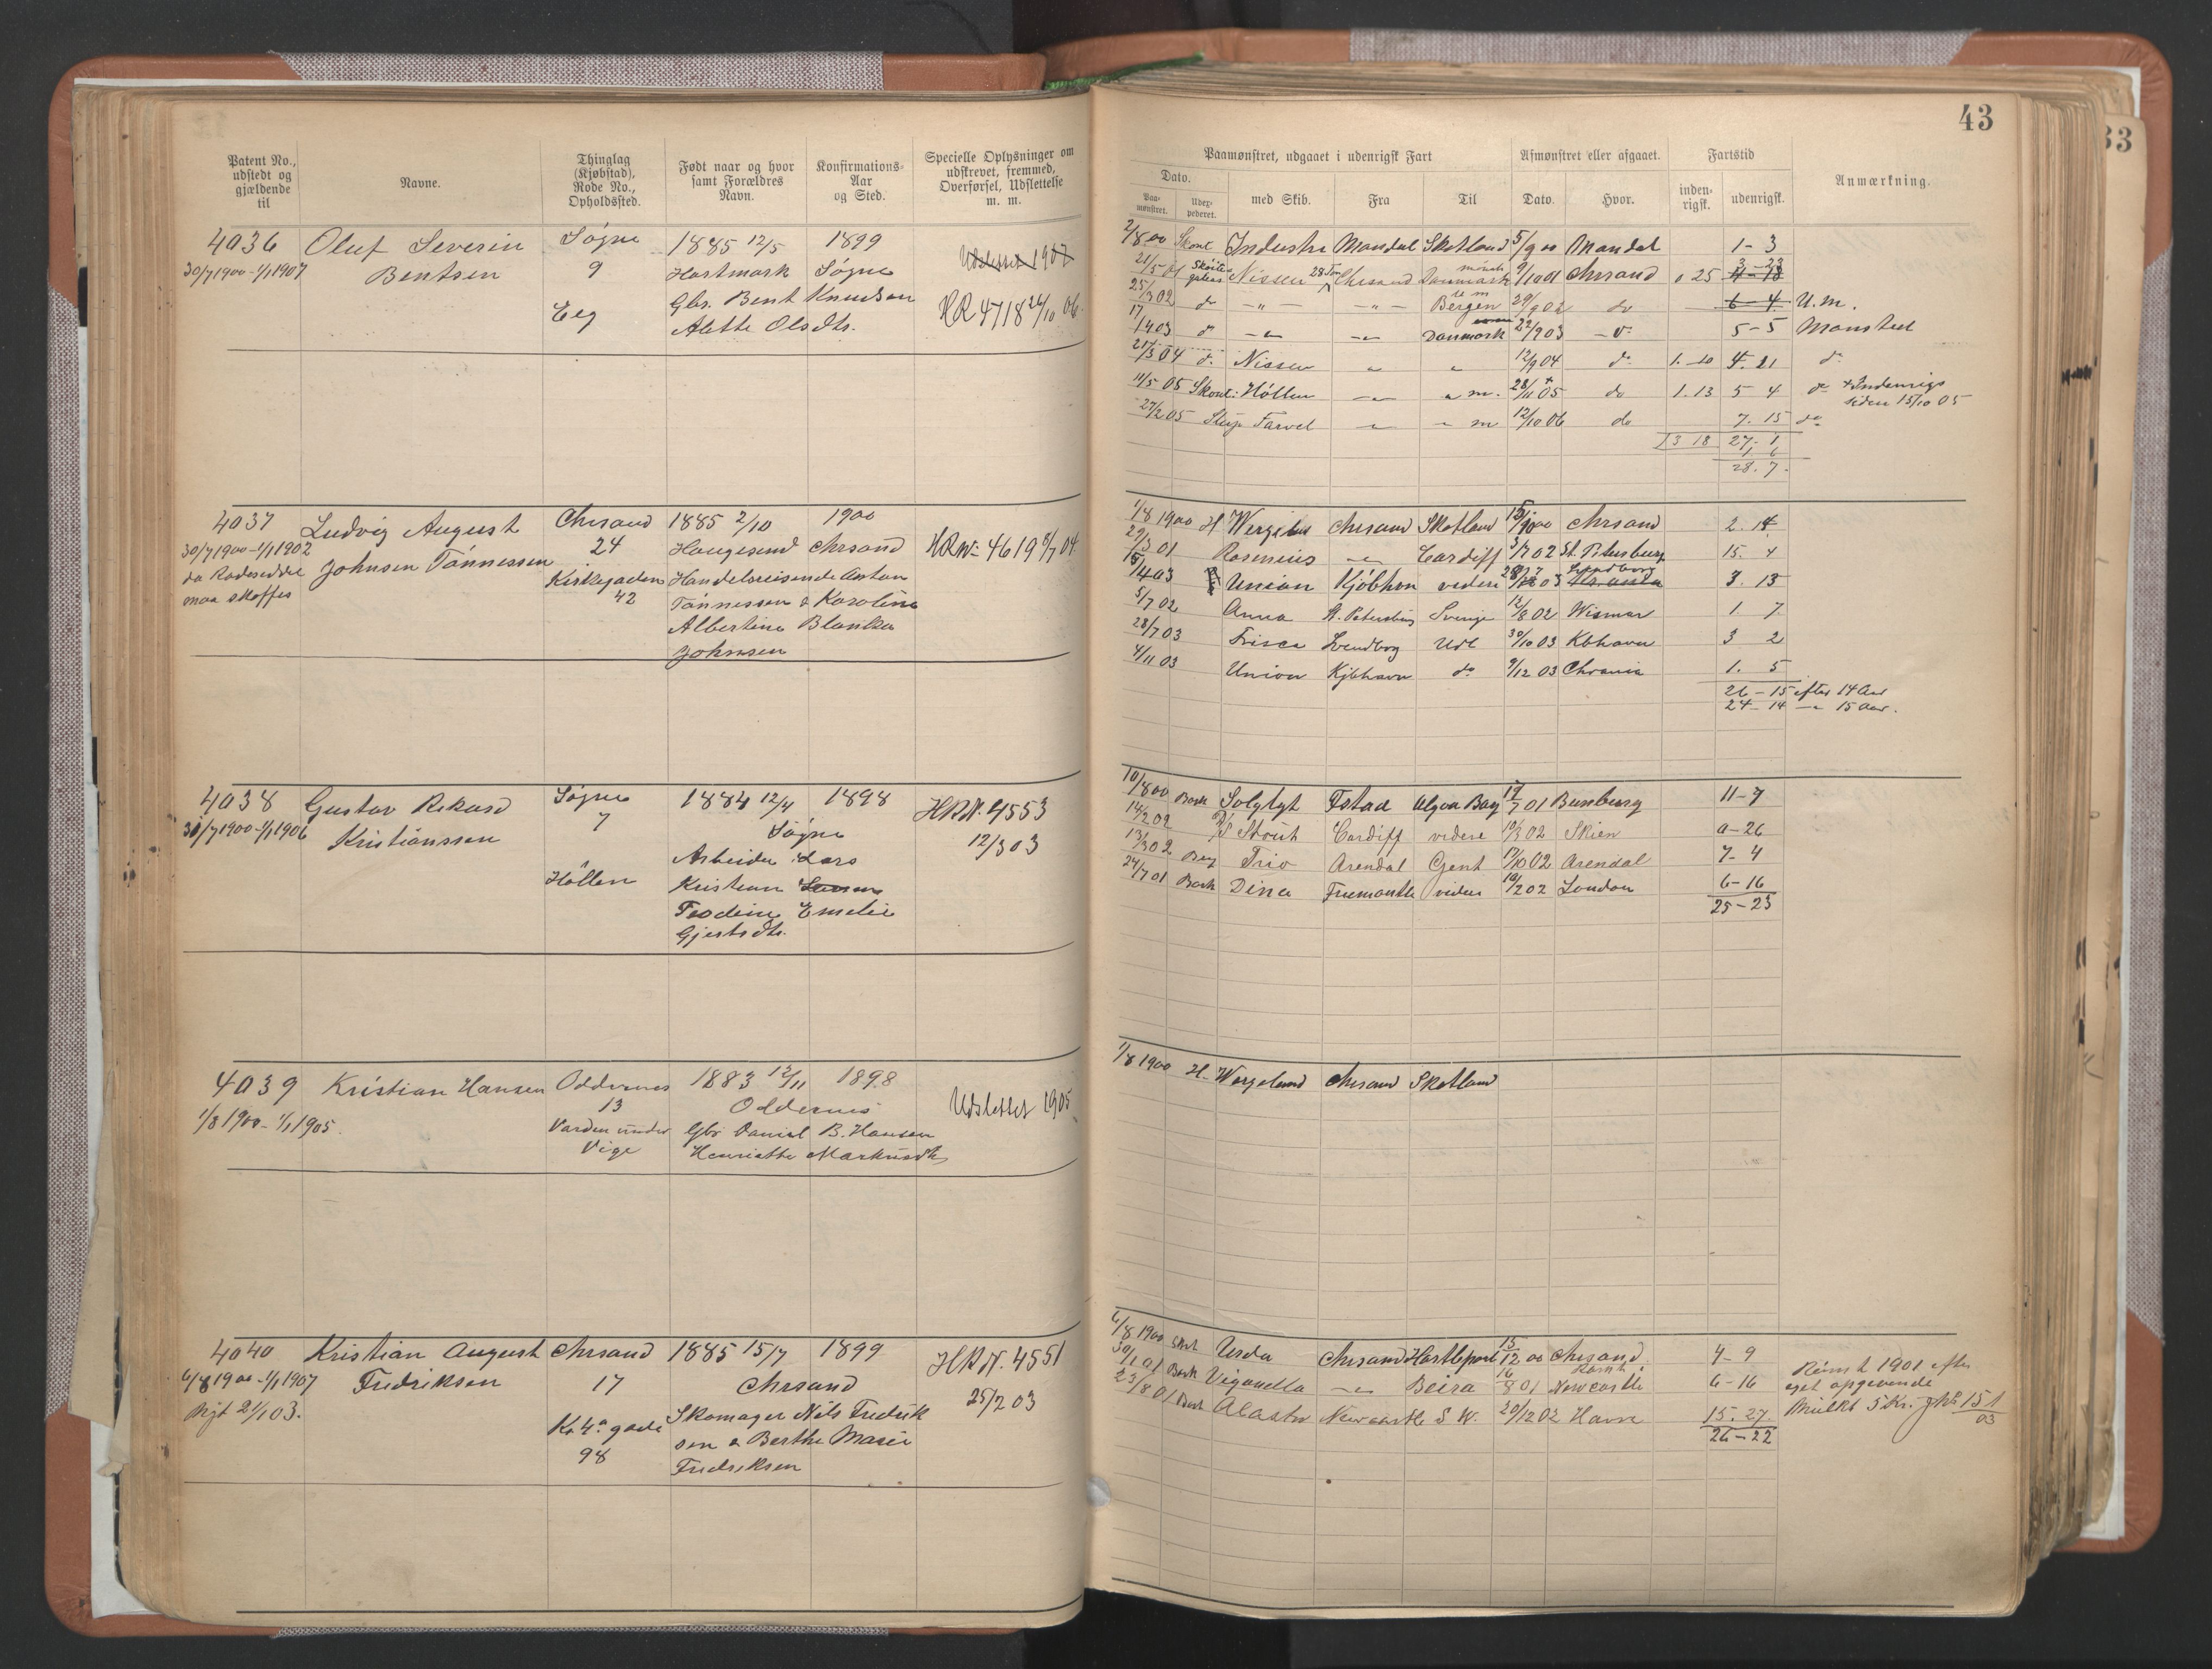 Patent No., udstedt og gjældende til
Navne.
Thinglag (Kjøbstad), Rode No., Opholdssted.
Født naar og hvor samt Forældres Navn.
Konfirmations-Aar og Sted.
Specielle Oplysninger om udskrevet, fremmed, Overførsel, Udslettelse m. m.
4036 Oluf Severin Søgne 1885 12/5 1899 Udslettet 1907
30/7 1900 - 1/1 1907 Bentsen 9 Hartmark Søgne
Eeg Gbr. Bent Knudsen HR 4718 26/10 06.
Alette Olsdtr.
4037 Ludvig August Chrsand 1885 2/10 1900
30/7 1900 - 1/1 1902 Johnsen Tönnessen 24 Haugesund Chrsand HR No 4619 8/7 04
da Rodeseddel Kirkegaden Handelsreisende Anton
maa skaffes 42 Tönnessen & Karoline
Albertine Blanka
Johnsen
4038 Gustav Rikard Søgne 1884 12/4 1898 HR N. 4553
30/7 1900 - 1/1 1906 Kristianssen 7 Søgne 12/3 03
Arbeider Lars
Höllen Kristian
Teodine Emelie
Gjertsdtr.
4039 Kristian Hansen Oddernes 1883 12/11 1898 Udslettet 1905
1/8 1900 - 1/1 1905. 13 Oddernes
Varden under Gbr Daniel B. Hansen
Vige Henriette Markusdtr
4040 Kristian August Chrsand 1885 15/7 1899 HR N. 4551
6/8 1900 - 1/1 1907 Fredriksen 17 Chrsand 25/2 03
21/1 03. K. 4de gade Skomager Nils Fredrik
98 sen & Berthe Marie
Fredriksen
43
33
Paamønstret, udgaaet i udenrigsk Fart
Afmønstret eller afgaaet.
Fartstid
Anmærkning.
Dato.
Paa-mønstret.
Udex-pederet.
med Skib.
Fra
Til
Dato.
Hvor.
inden-rigsk.
udenrigsk.
2/8 00 Skont Industri Mandal Skotland 5/9 00 Mandal 1 - 3
21/5 01 Nissen 28 Ton Chrsand Danmark 9/10 01 Chrsand 0 25 4 - 18 3 - 23
25/3 02 do -"- -"- Bergen 29/9 02 do 6 - 4 U.m.
17/4 03 d -"- -"- Danmark 22/9 03 - o - 5 - 5 Mønstret
21/3 04 d. Nissen " " 12/9 04 do 1. 10 4. 21 do
11/5 05 Skont. Höllen -"- " m. 28/11 05 do 1. 13 5 4 do + Indenrigs
siden 15/10 05
27/2 05 Farvel " " m 12/10 06 do 7. 15 do
3 18 27. 1
1 6
28. 7.
1/8 1900 H Chrsand Skotland 15/10 00 Chrsand 2. 14
29/3 01 Rosenius -"- Cardiff 3/7 02 St. Petersburg 15. 4
15/4 03 Union Kjöbhvn videre 28/7 03 Svendborg 3. 13
5/7 02 Anna St. Petersburg Sverige 12/8 02 Wismar 1 7
28/7 03 Frisca Svendborg Udl 30/10 03 Kbhavn 3 2
4/11 03 Union Kjbhavn do 9/12 03 Chrania 1. 5
26 - 15 efter 14 Aar
24 - 14 -"- 15 Aar.
10/8 00 Bark Solglyt Ystad Algoa Bay 17/7 01 Bunburg 11 - 7
14/2 02 D/S Stout Cardiff videre 10/3 02 Skien 0 - 26
13/3 02 Brig Trio Arendal Gent 17/10 02 Arendal 7 - 4
24/7 01 Bark Dina Fremantle videre 10/2 02 London 6 - 16
25 - 23
1/8 1900 H. Wergeland Chrsand Skotland
6/8 1900 Skt Urda Chrsand Hartlepool 15/12 00 Chrsand 4 - 9
30/1 01 Bark Vigandla -"- Beira 16/8 01 Newcastle 6 - 16
23/8 01 Bark Alaster Newcastle S W. 20/12 02 Havre 15. 27.
26 - 22
Römt 1901 efter
eget opgivende
Mulkt 5 Kr. 15/1 03